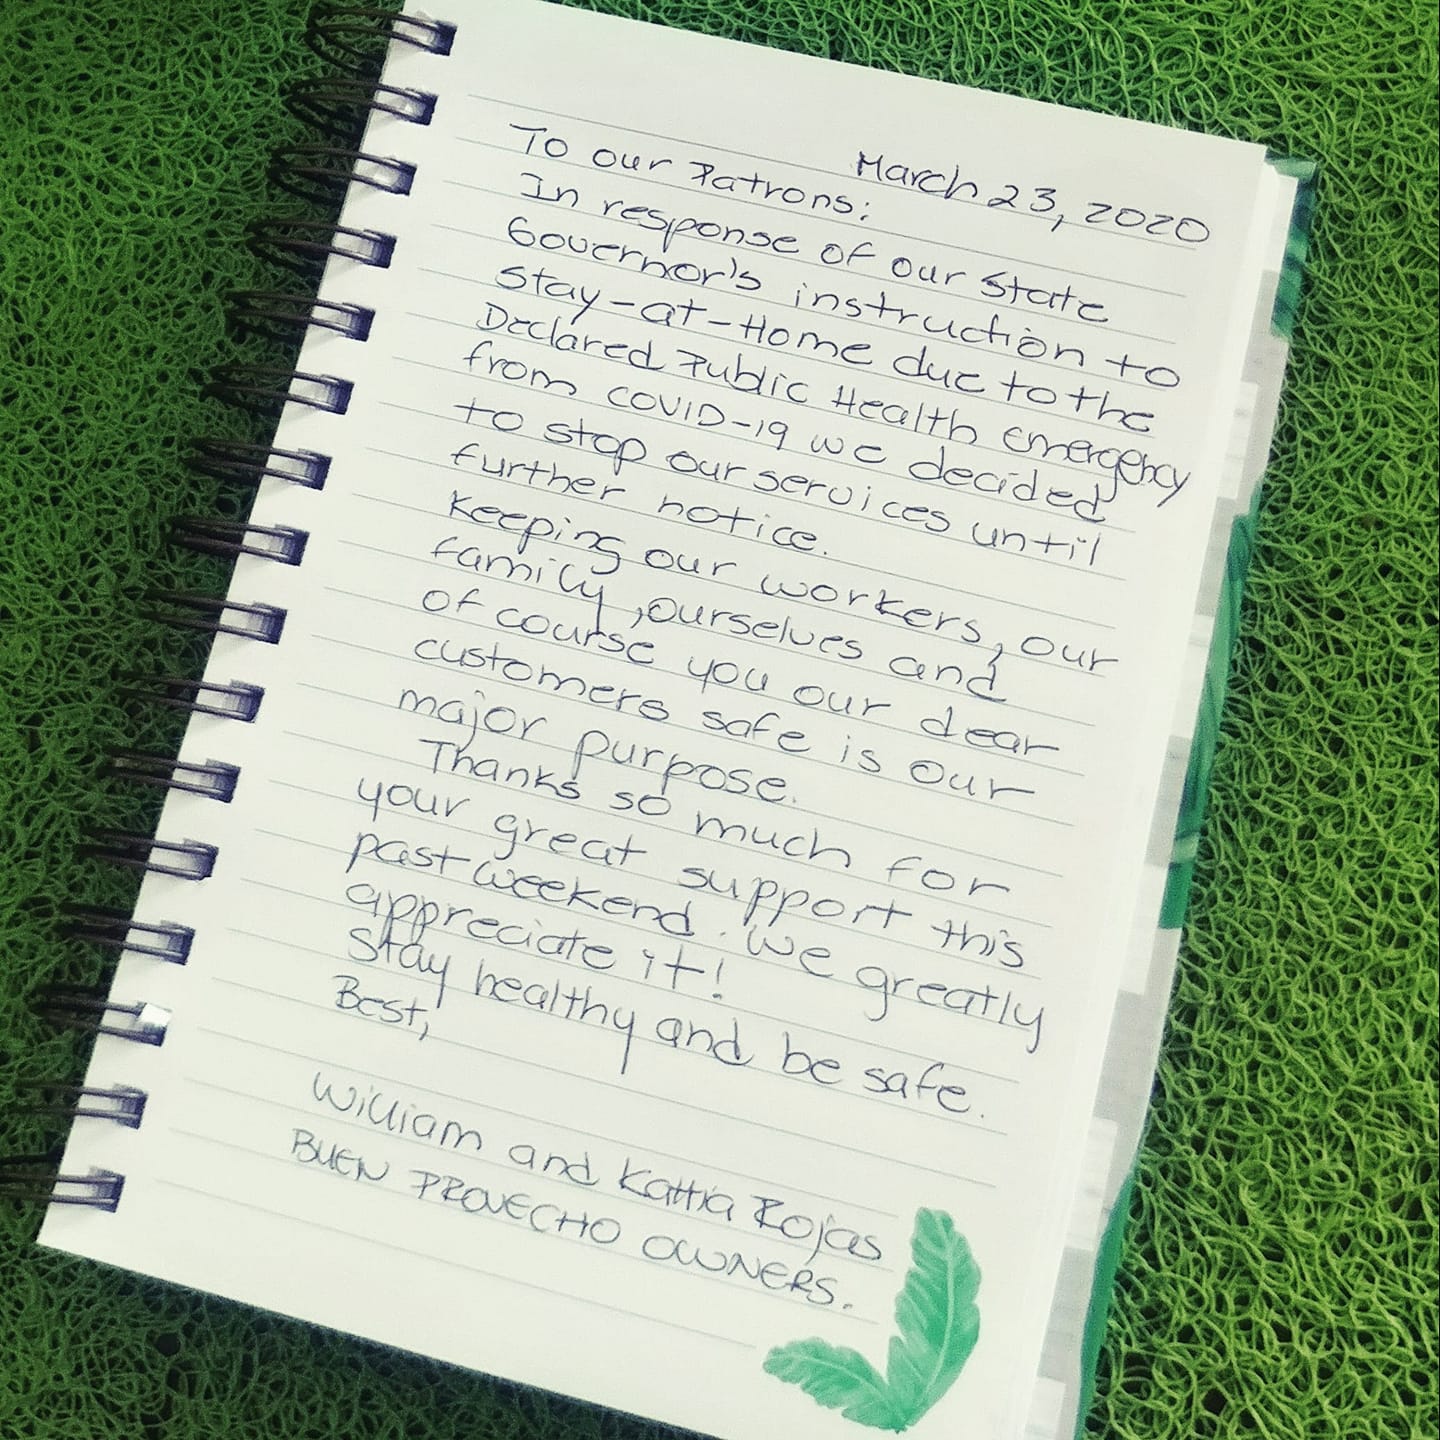 March 23, 2020
To our Patrons:
In response of our State
Governor's instruction to
Stay-at-Home due to the
Declared Public Health emergency
from COVID-19 we decided
to stop our services until
further notice.
Keeping our workers, our
family, ourselves and
of course you our dear
customers safe is our
major purpose.
Thanks so much for
your great support this
past weekend. We greatly
appreciate it!
Stay healthy and be safe.
Best,
William and Kattia Rojas
BUEN PROVECHO OWNERS.